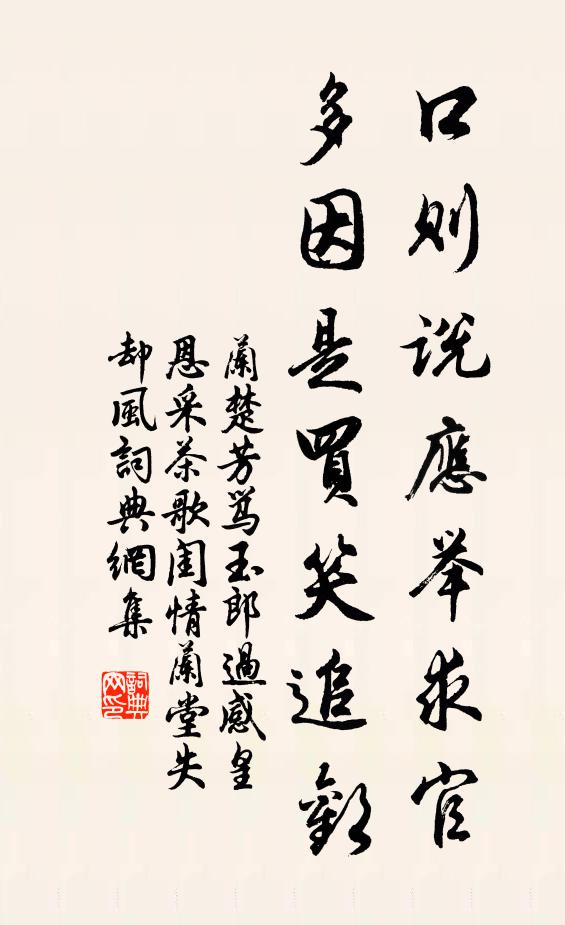 口则説應举求官
多因是買笑追歡
蘭楚芳罵玉郎過感皇
恩采茶歌闺情蘭堂失
却風詞典網集
詞典
网印